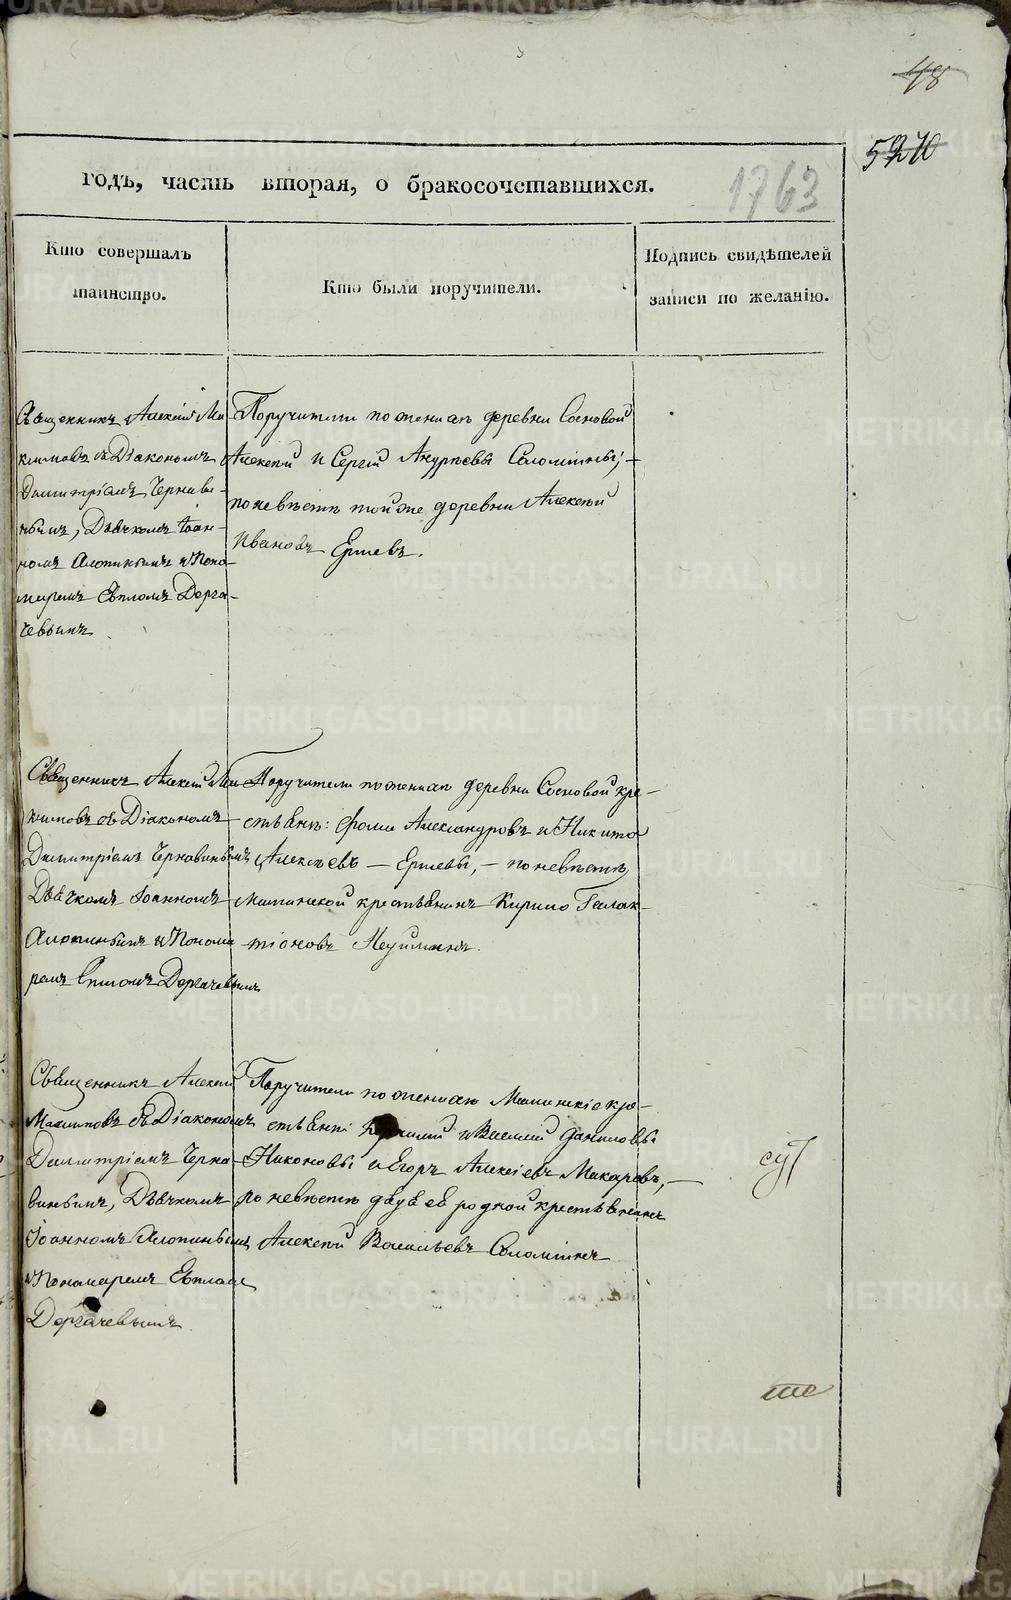 48
5270
годъ, часть вторая, о бракосочетавшихся.
1763
Кто совершалъ
таинство.
Кто были поручители.
Подпись свидѣтелей
записи по желанію.
Священникъ Алексій Ма
климовъ съ Діакономъ
Димитріемъ Чернави-
нымъ, Дьячкомъ Іоан-
номъ Слопинымъ и Поно-
маремъ Евпломъ Дерга-
чевымъ
Поручители по женихѣ деревни Сосновой
Алексѣй и Сергій Андреевы Соломѣины;
по невѣстѣ той же деревни Алексѣй
Ивановъ Ершевъ.
Священникъ Алексій Ма
климовъ съ Діакономъ
Димитріемъ Чернавинымъ
Дьячкомъ Іоанномъ
Слопинымъ и Понома
ремъ Евпломъ Дергачевымъ
Поручители по женихѣ деревни Сосновой кре-
стьяне: Фома Александровъ и Никита
Алексѣевъ — Ершевы, — по невѣстѣ
крестьянинъ Кирило Галак-
тіоновъ
Священникъ Алексій
Маклимовъ съ Діакономъ
Димитріемъ Черна-
винымъ, Дьячкомъ
Іоанномъ Слопинымъ
и Пономаремъ Евпломъ
Дергачевымъ
Поручители по женихѣ кре-
стьяне и Василій Даниловы
Никоновы и Егоръ Алексіевъ Макаровъ, —
по невѣстѣ двухъ родной крестьянинъ
Алексѣй Васильевъ Соломѣинъ
METRIKI.GASO-URAL.RU